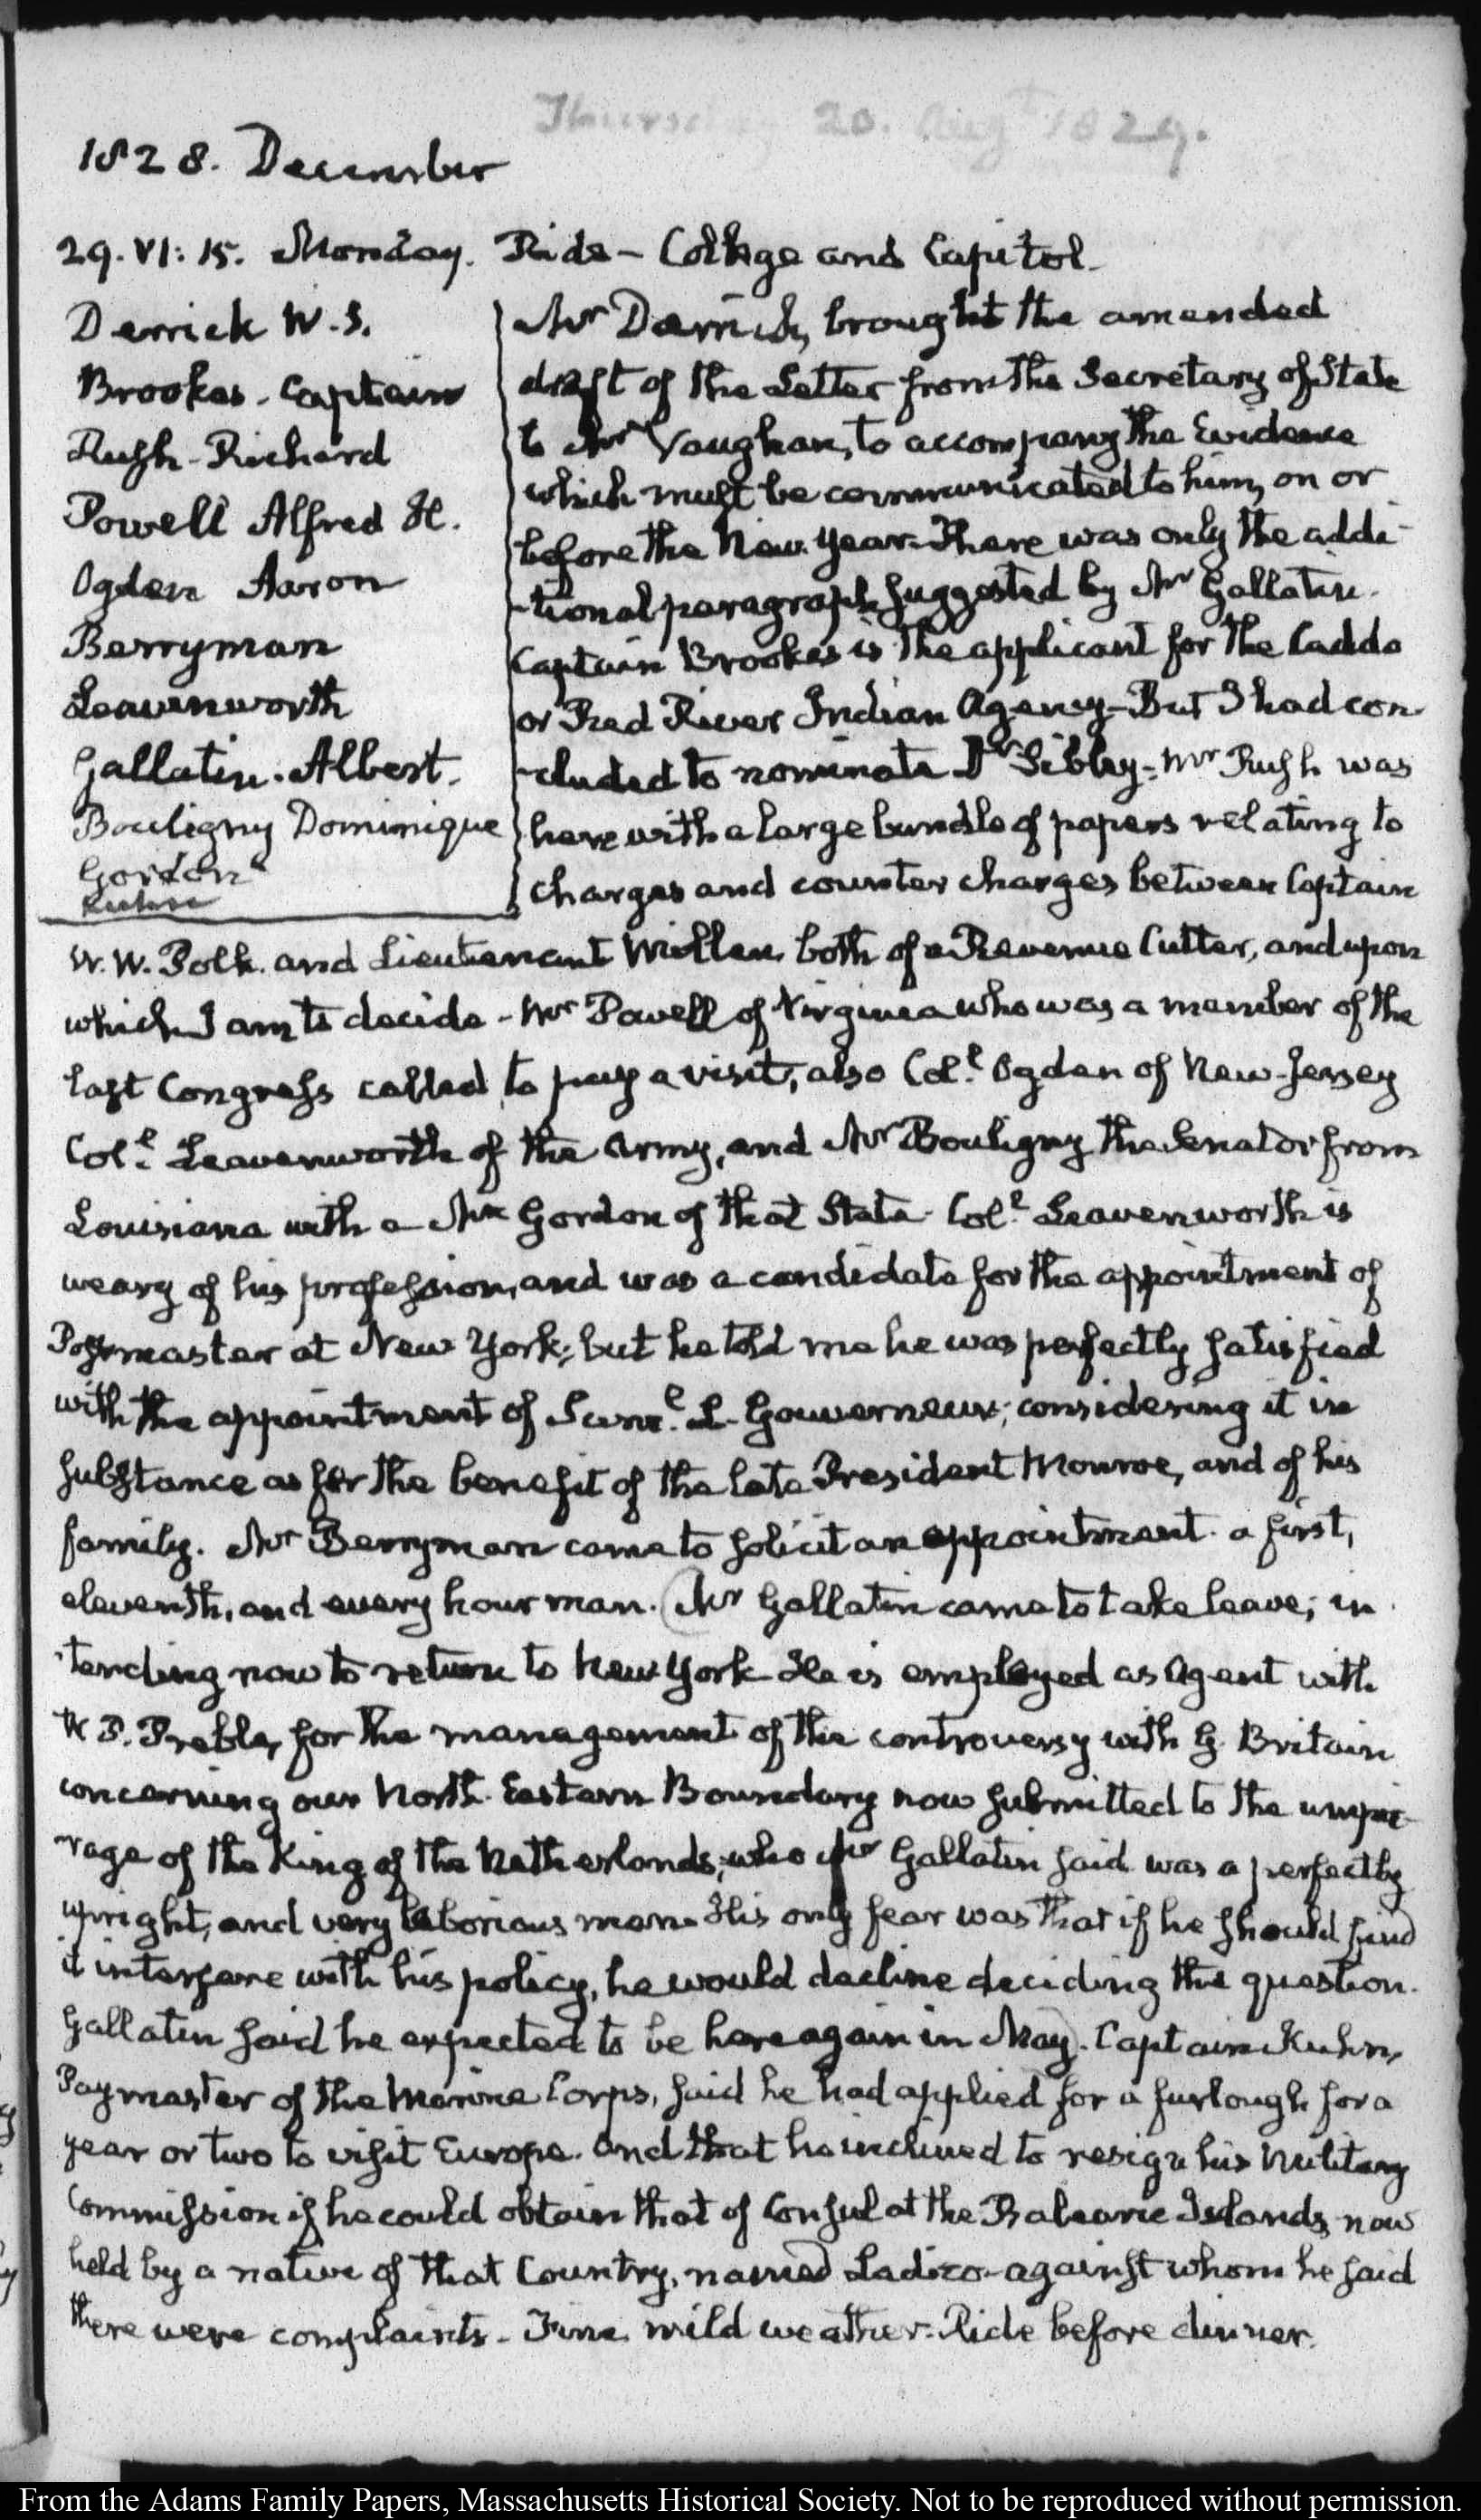 Thursday 20. Aug.t 1829.
1828. December
29. VI: 15. Monday. Ride – College and Capitol.
Derrick W. S.
Brookes. Captain
Rush - Richard
Powell Alfred H.
Ogden Aaron
Berryman
Leavenworth
Gallatin. Albert.
Bouligny Dominique
Gordon
Kuhn
Mr Derrick, brought the amended
draft of the Letter from the Secretary of State
to Mr Vaughan, to accompany the Evidence
which must be communicated to him, on or
before the New Year. There was only the addi-
-tional paragraph suggested by Mr Gallatin.
Captain Brookes is the applicant for the Caddo
or Red River Indian Agency – But I had con-
-cluded to nominate Dr Sibley – Mr Rush was
here with a large bundle of papers relating to
charges and counter charges between Captain
W. W. Polk. and Lieutenant both of a Revenue Cutter, and upon
which I am to decide – Mr Powell of Virginia who was a member of the
last Congress called, to pay a visit, also Col.l Ogden of New-Jersey
Col.l Leavenworth of the Army, and Mr Bouligny the Senator from
Louisiana with a Mr Gordon of that State. Col.l Leavenworth is
weary of his profession, and was a candidate for the appointment of
Postmaster at New York; but he told me he was perfectly satisfied
with the appointment of Sam.l L. Gouverneur; considering it in
substance as for the benefit of the late President Monroe, and of his
family. Mr Berryman came to solicit an appointment. a first,
eleventh, and every hour man. Mr Gallatin came to take leave; in
-tending now to return to New York. He is employed as Agent with
W P. Preble, for the management of the controversy with G. Britain
concerning our North-Eastern Boundary now submitted to the umpi-
-rage of the King of the Netherlands; who Mr Gallatin said was a perfectly
upright, and very laborious man. His only fear was that if he should find
it interfere with his policy, he would decline deciding the question.
Gallatin said he expected to be here again in May. Captain Kuhn,
Paymaster of the Marine Corps, said he had applied for a furlough for a
year or two to visit Europe. and that he inclined to resign his military
Commission if he could obtain that of Consul at the Balearic Islands, now
held by a native of that Country, named Ladico – against whom he said
there were complaints – Fine mild weather. Ride before dinner.
From the Adams Family Papers, Massachusetts Historical Society. Not to be reproduced without permission.